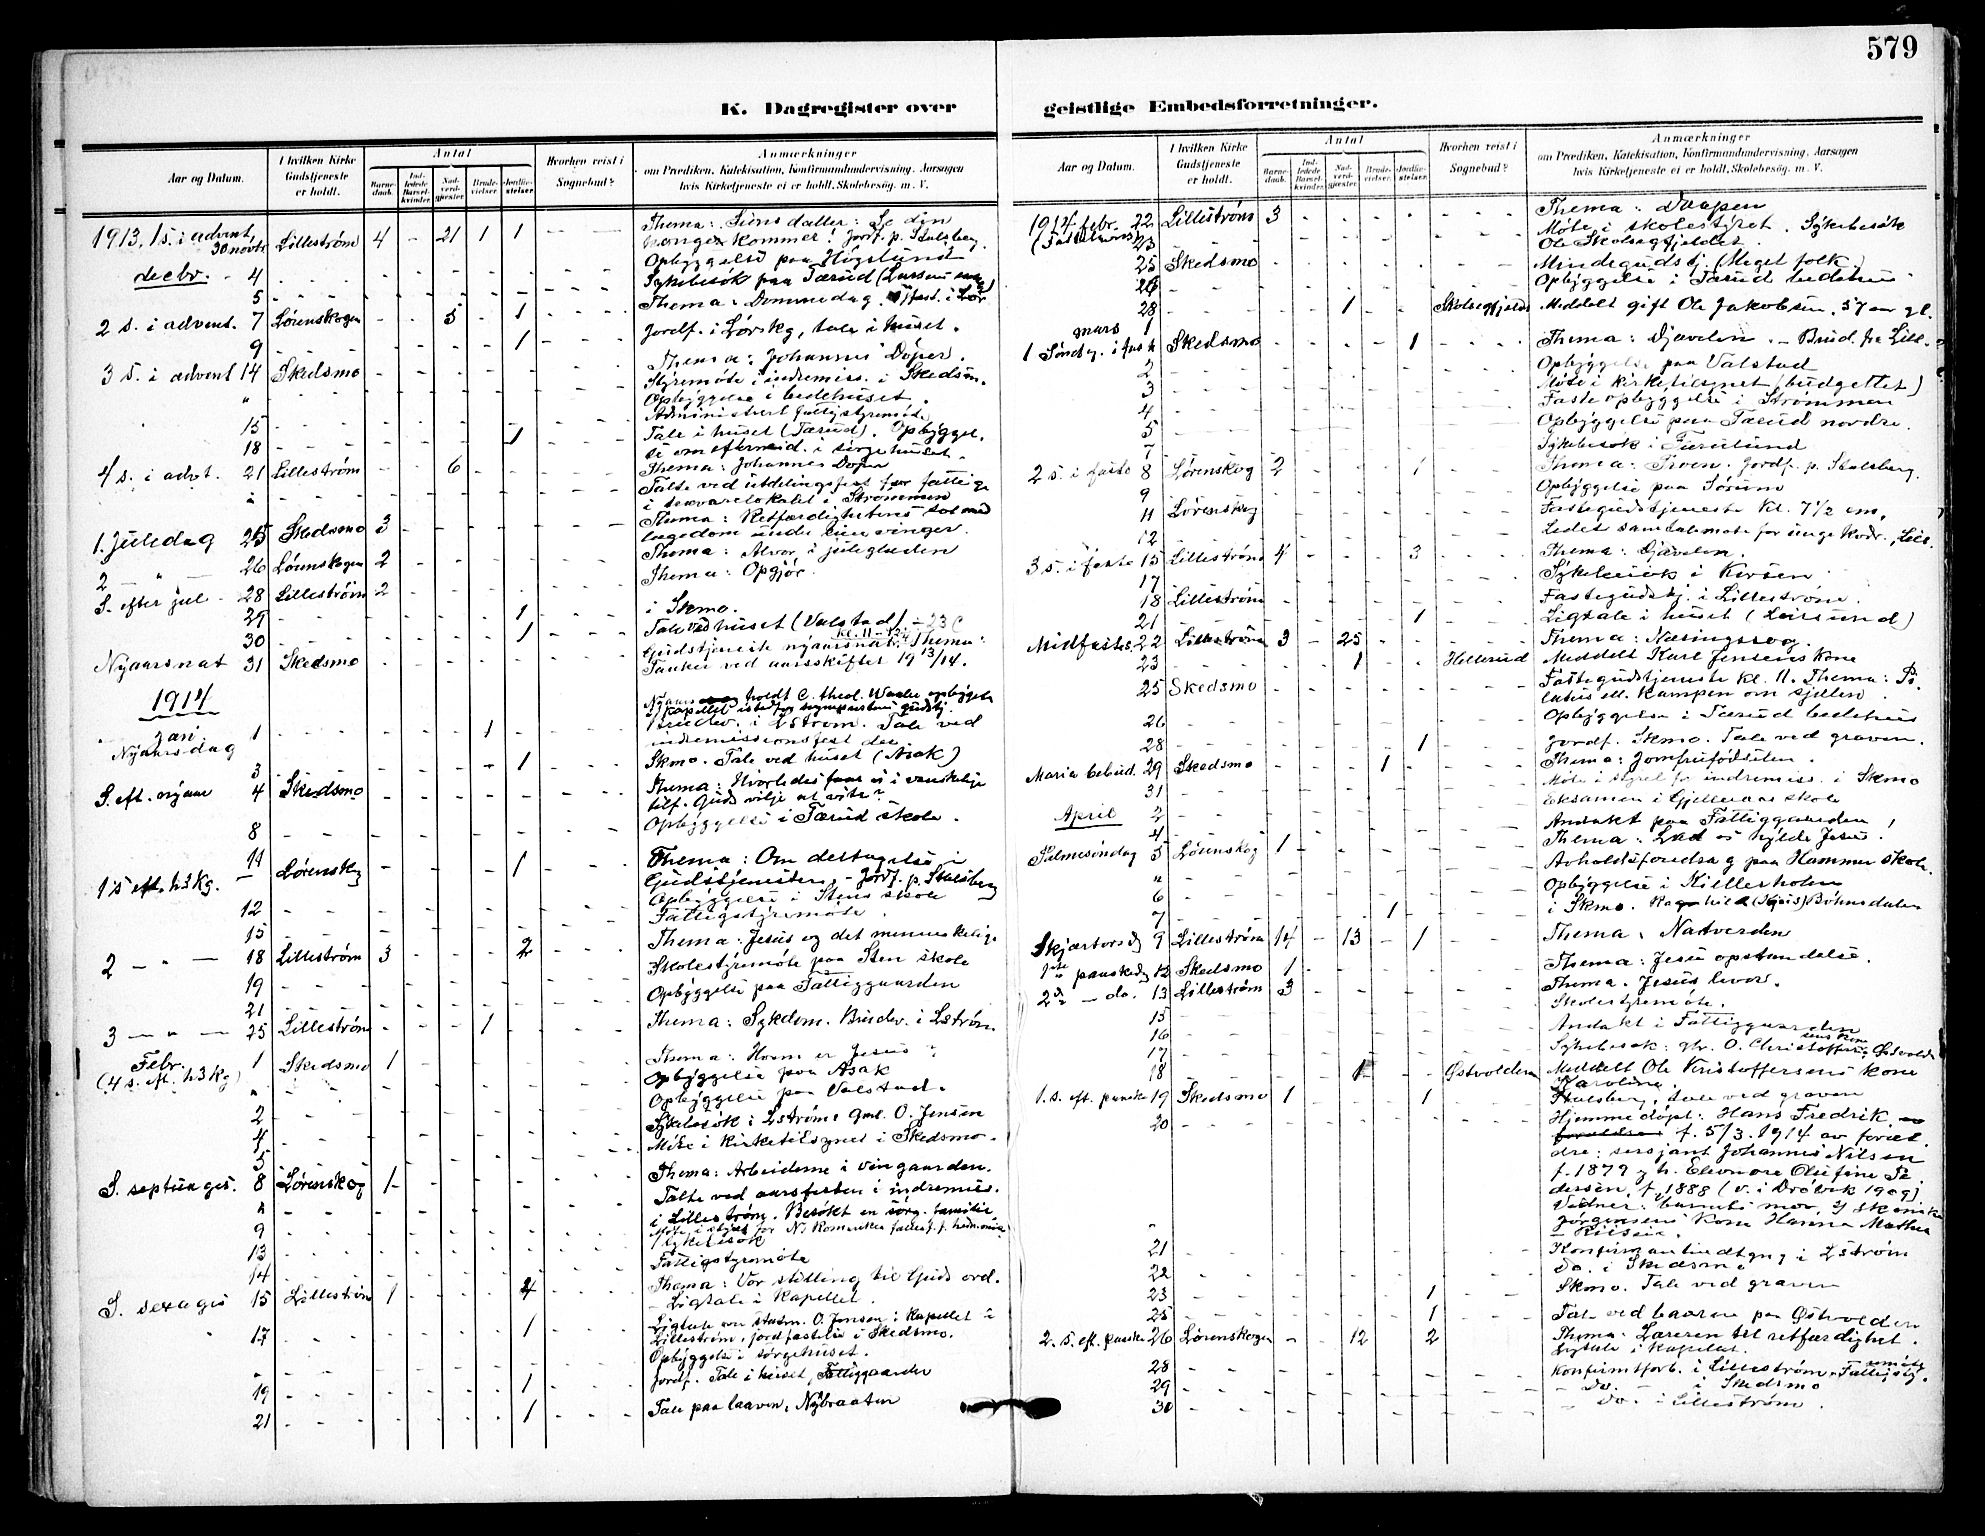 579
K. Dagregister over
Aar og Datum.
I hvilken Kirke Gudstjeneste er holdt.
Antal
Barnedaab.
Indledede Barselkvinder.
Nadverdgjester
Brudevielser
Jordfæstelser.
Hvorhen reist i Sognebud?
Anmærkninger
om Prædiken, Katekisation, Konfirmandundervisning, Aarsagen
hvis Kirketjeneste ei er holdt, Skolebesøg. m. V.
1913, 1 s. i advent, 30 novbr Lilleström 4 - 21 1 1 Thema: Sions datter: Se din
konge kommer! Jordf. p. Stalsberg.
Opbyggelse paa Høgslund
decbr. - 4
5 Thema: Dommedag.
2 s. i advent. 7 Lørenskogen - - 5 - 1
9 1 Jordf. i Lørskg, tale i huset.
3 s. i advent 14 Skedsmo Thema: Johannes Døper.
Styremöte i indremiss. i Skedsm.
Opbyggelse i bedehuset.
15
18 1 Tale i huset (Tærud). Opbygget.
se om eftermid. i sörgehuset.
4 s. i advt. 21 Lilleström - - 6 - Thema: Johannes Döper
Talte ved utdelingsfest for fattige
i Strømmen
1. Juledag 25 Skedsmo 3 Thema: Retfærdighetens sol med
lægedom under sine vinger.
2 - " - 26 Lørenskogen 2 Thema: Alvor i juleglæden
S. efter jul 28 Lilleström 2 Thema: Opgjör.
29 1 i Skmo.
30 1 Tale ved huset (Valstad)
kl. 11-12
Nyaarsnat 31 Skedsmo Gudstjeneste nyaarsnat. Thema:
Tanker ved aarsskiftet 19 13/14.
1914
Jan.
Nyaarsdag 1 1
Brudev. i Lström. Tale ved
indremissionsfest der
3 1 Skmo. Tale ved huset (Asak)
S. eft. nyaar 4 Skedsmo Thema: Hvorledes faar vi i vanskelige
tilf. Guds vilje at vite?
8 Opbyggelse i Tærud skole.
1 s. eft. h3kg. 11 Lørenskg 1 Thema: Om deltagelse i
Gudstjenesten. - Jordf. p. Stalsberg
Opbyggelse i Stens skole
12 Fattigstyremöte.
15
2 - " - 18 Lilleström 3 2 Thema: Jesus og det menneskelige
Skolestyremöte paa Sten skole
19 Opbyggelse paa Fattiggaarden
21
3 - " - 25 Lilleström 1 Thema: Sykdom. Brudev. i Lström.
Febr. 1 Skedsmo 1 Thema: Hvem er Jesus?
(4 s. eft. h3kg) Opbyggelse paa Asak
" Opbyggelse paa Valstad.
2 Sykebesök i Lström: Gml. O. Jensen
4 Möte i kirketilsynet i Skedsmo.
5
S. septuages. 8 Lørenskog 1 Thema: Arbeiderne i vingaarden.
" Talte ved aarsfesten i indremiss.
i Lilleström. Besökt en sörg. familie
9
Sykebesök
13 Fattigstyremöte
14
S. sexages 15 Lilleström 1 4 Thema: Vor stilling til Guds ord.
- Ligtale i Kapellet.
17 1 Ligtale over O. Jensen i Kapellet i
Lilleström, jordfæstelse i Skedsmo.
" Opbyggelse i sörgehuset.
19 1 Jordf. Tale i huset, Fattiggaarden
21 1 Tale paa laaven, Nybraaten
geistlige Embedsforretninger.
Aar og Datum.
I hvilken Kirke Gudstjeneste er holdt.
Antal
Barnedaab.
Indledede Barselkvinder.
Nadverdgjester
Brudevielser
Jordfæstelser.
Hvorhen reist i Sognebud?
Anmærkninger
om Prædiken, Katekisation, Konfirmandundervisning, Aarsagen
hvis Kirketjeneste ei er holdt, Skolebesøg. m. V.
1914 febr. 22 Lilleström 3 Thema: Daapen
(Fastelavns) 23 Möte i skolestyret. Sykebesök
Ole Skolsegfjeldet.
25 Skedsmo Mindegudstj. (Meget folk)
26 Opbyggelse i Tærud bedehus
28 1 Meddelt gift Ole Jakobsen, 57 aar gl.
mars 1
1 Söndg. i fast Skedsmo 1 Thema: Djævelen. - Brud. fra Lill.
2 Opbyggelse paa Valstad
3 Möte i kirketilsynet (budgettet)
4 Fasteopbyggelse i Strömmen
5 Opbyggelse paa Tærud nordre.
7 Sykebesök i Furulund
2 s. i faste 8 Lörenskog 2 1 Thema: Troen. Jordf. p. Stalsberg.
9 Opbyggelse paa Sörum
11 Lörenskog Fastegudstjeneste kl. 7 1/2 em.
12
3 s. i faste 15 Lilleström 4 3 Thema: Djævelen.
17
18 Lilleström Fastegudstj. i Lilleström.
21 1 Ligtale i huset (Leirsund)
Midfastes. 22 Lilleström 3 - 25 Thema: Næringssorg.
23 1 Hellerud Meddelt Karl Jensens kone
25 Skedsmo Fastegudstjeneste kl. 11. Thema: Pi
latus ell. Kampen om sjelen.
26 Opbyggelse i Tærud bedehus
28 1 Jordf. Skmo. Tale ved graven.
Maria bebud. 29 Skedsmo 1 Thema: Jomfrufödselen.
31 Möte i styret for indremiss. i Skmo
April 2 Eksamen i Gjelleraas skole
4 Andakt paa Fattiggaarden
Palmesöndag 5 Lörenskog 1 Thema: Lad os hylde Jesus!
" Avholdsforedrag paa Hammer skole.
6 Opbyggelse i Killesholen
7 1 i Skmo.
Skjærtorsd 9 Lilleström 14 - 13 - 1 Thema: Nadverden
1ste paaskedg 12 Skedsmo 1 Thema: Jesu opstandelse.
2d - do. 13 Lilleström 3 Thema: Jesus lever.
15 Skolestyremöte.
16 Andakt i Fattiggaarden
17 Sykebesök: O. Christoffersens kone, Østvolden
18 1 Østvolden Meddelt Ole Kristoffersens kone
Karoline.
1. s. eft. paaske 19 Skedsmo 1 1 Stalsberg, tale ved graven
20 Hjemmedöpt: Hans Fredrik
f. 5/3 1914 av foræl
dre: sersjant Johannes Nilsen
f. 1879 g h. Eleonore Olufine Pe
dersen, f. 1888 (v. i Dröbak 1909).
Vidner: barnets mor, g
Jörgensens kone Hanna Mathea
Nilsen.
21 i Lström
22 Do. i Skedsmo
23 1 Skmo. Tale ved graven
25 1 Tale ved baaren paa Østvolden
2. s. eft. paaske 26 Lørenskogen - - 12 2 Thema: Læreren til retfærdighet.
Ligtale i kapellet.
28 Konfirmtforb. i Lilleström. Fattigstyremöte
29 - Do. - i Skedsmo
30 - Do. - i Lilleström.